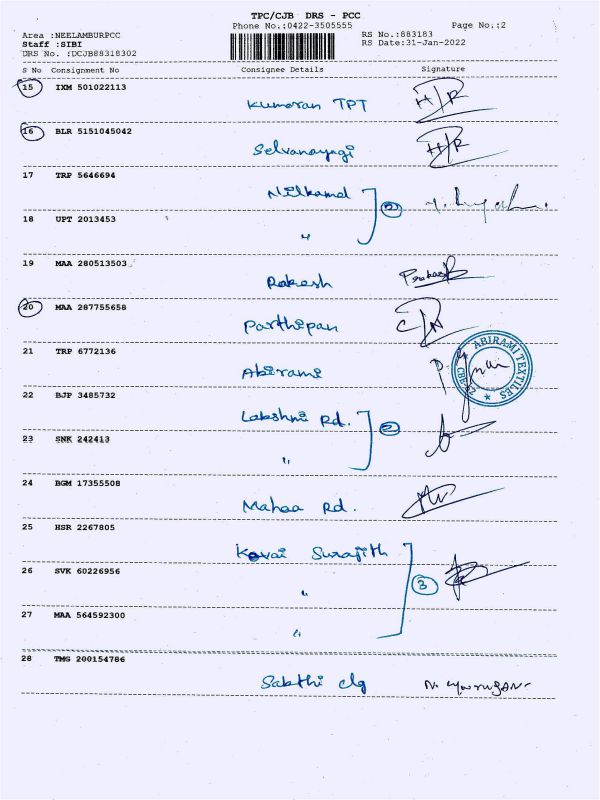 TPC/CJB DRS - PCC
Phone No.:0422-3505555 Page No.:2
Area :NEELAMBURPCC RS No.:883183
Staff :SIBI RS Date:31-Jan-2022
DRS No. :DCJB88318302
S No Consignment No Consignee Details Signature
15 IXM 501022113
Kumaran TPT H/R
16 BLR 5151045042
Selvanayagi H/R
17 TRP 5646694
Nilkamal 2
18 UPT 2013453
"
19 MAA 280513503
Rakesh
20 MAA 287755658
Parthipan
21 TRP 6772136
Abirami
ABIRAMI TEXTILES
22 BJP 3485732
Lakshmi Rd. 2
23 SNK 242413
"
24 BGM 17355508
Mahaa Rd.
25 HSR 2267805
Kovai Surajith
26 SVK 60226956
" 3
27 MAA 564592300
"
28 TMG 200154786
Sakthi clg N. Murugan